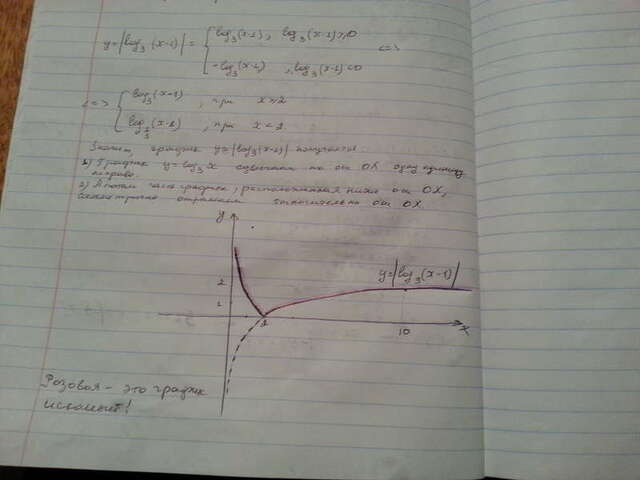 y=|log₃(x-1)| = { log₃(x-1), log₃(x-1)≥0 <=>
-log₃(x-1), log₃(x-1)<0
<=> { log₃(x-1), при x≥2
log (x-1), при x<2
Значит, график y=|log₃(x-1)| получается
1) График y=log₃x сдвигаем по оси OX одну единицу
вправо.
2) А потом часть графика, расположенная ниже оси OX,
симметрично отражаем относительно оси OX.
y
y=|log₃(x-1)|
2
1
2
10
x
Розовая - это график
искомый!